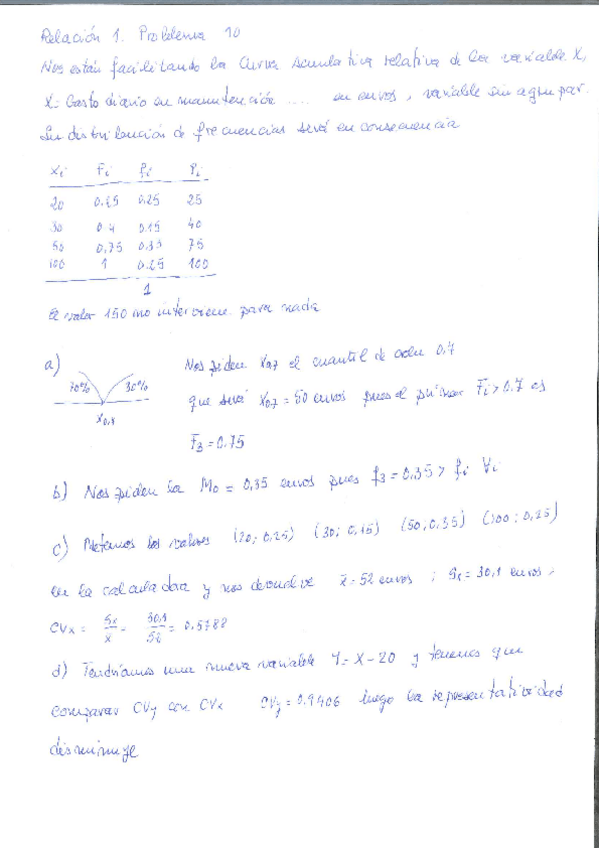 Relación 1. Problema 10
Nos están facilitando la Curva Acumulativa relativa de la variable X,
X = Gasto diario en manutención .... en euros, variable sin agrupar.
Su distribución de frecuencias será en consecuencia
Xi Fi fi Pi
20 0.25 0.25 25
30 0.4 0.15 40
50 0.75 0.35 75
100 1 0.25 100
1
El valor 150 no interviene para nada
a) Nos piden X0.7 el cuantil de orden 0.7
70% 30%
que será X0.7 = 50 euros pues el primer Fi > 0.7 es
X0.7
F3 = 0.75
b) Nos piden la Mo = 0,35 euros pues f3 = 0,35 > fi ∀i
c) Metemos los valores (20; 0,25) (30; 0,15) (50; 0,35) (100; 0,25)
en la calculadora y nos devuelve x̄ = 52 euros ; Sx = 30,1 euros.
CVx = Sx/x̄ = 30,1/52 = 0.5788
d) Tendríamos una nueva variable Y = X - 20 y tenemos que
comparar CVy con CVx CVy = 0.9406 luego la representatividad
disminuye